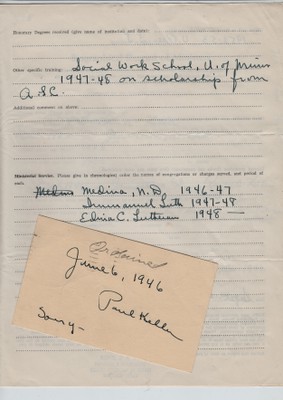 Honorary Degrees received (give name of institution and date):
Other specific training: Social Work School, U. of Minn
1947-48 on scholarship from
A.S.C.
Additional comment on above:
Ministerial Service. Please give in chronological order the names of congregations or charges served, and period of
each.
Medina, N.D. 1946-47
Immanuel Luth 1947-48
Edina C. Lutheran 1948 —
Ordained
June 6, 1946
Paul Keller
Sorry -